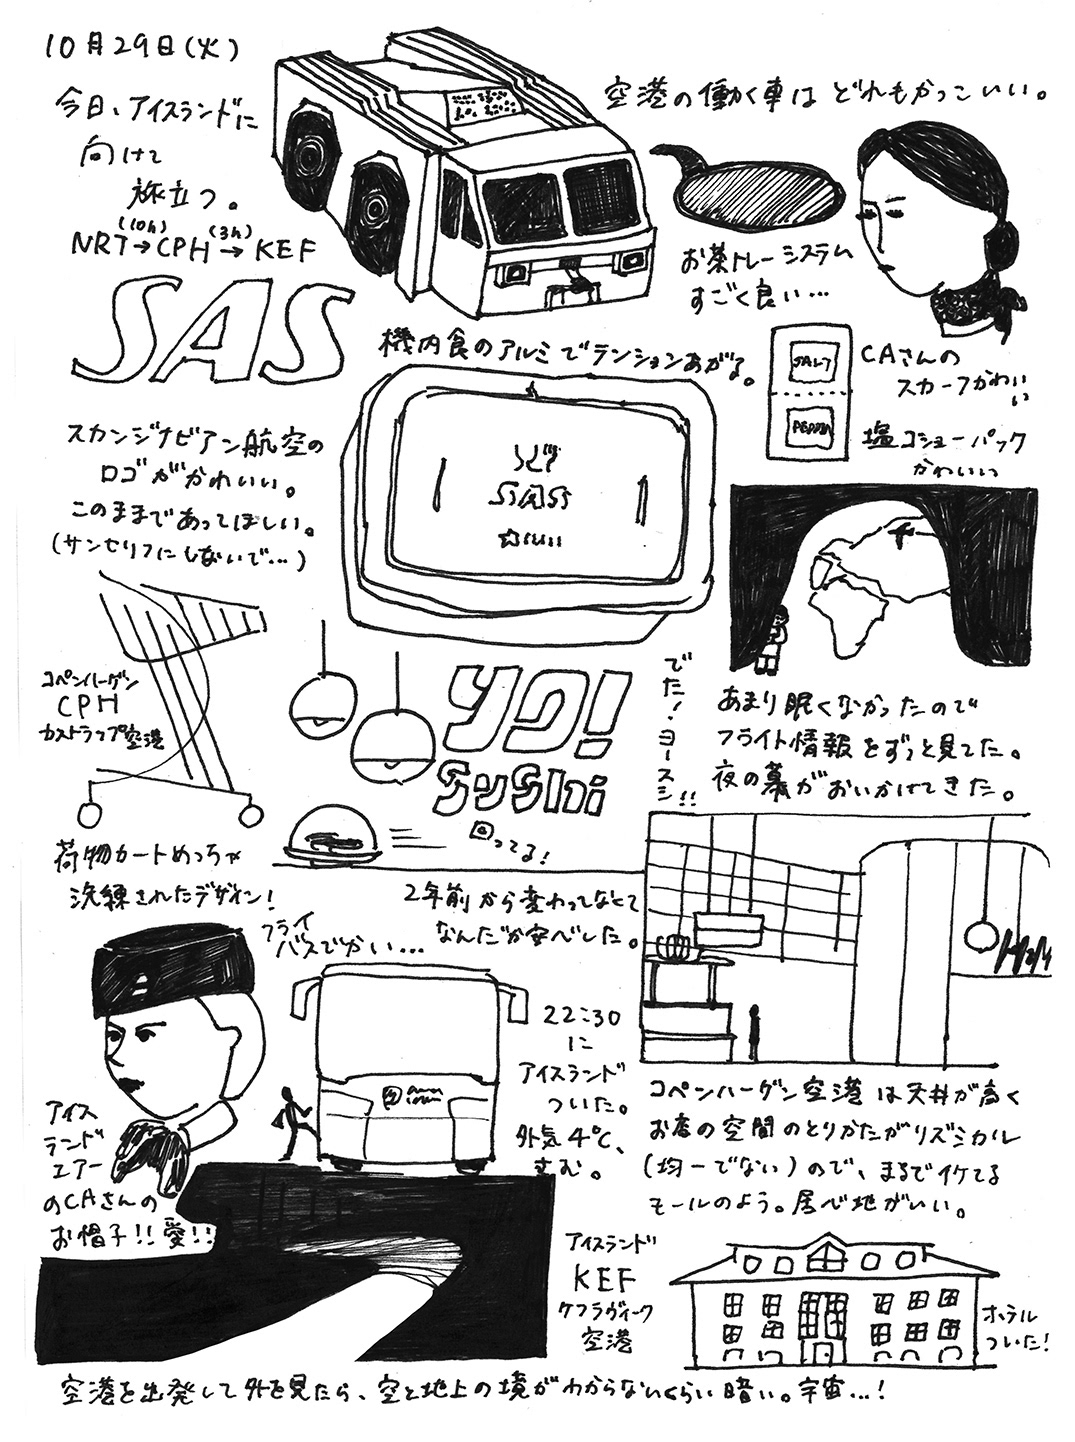 10月29日(火)
今日、アイスランドに
向けて
旅立つ。
(10h) (3h)
NRT→CPH→KEF
SAS
空港の働く車は どれもかっこいい。
お茶トレーシステム
すごく良い…
機内食のアルミでテンションあがる。
SALT
CAさんの
スカーフかわいい
塩コショーパック
かわいいっ
スカンジナビアン航空の
ロゴがかわいい。
このままであってほしい。
(サンセリフにしないで…)
SAS
コペンハーゲン
CPH
カストラップ空港
YO!
Sushi
でた!ヨースシ!!
回ってる!
あまり眠くなかったので
フライト情報をずっと見てた。
夜の幕がおいかけてきた。
荷物カートめっちゃ
洗練されたデザイン!
2年前から変わってなくて
なんだか安心した。
フライ
バスでかい…
22:30
に
アイスランド
ついた。
外気4℃、
さむい。
アイス
ランド
エアー
のCAさんの
お帽子!!愛!!
コペンハーゲン空港は天井が高く
お店の空間のとりかたがリズミカル
(均一でない)ので、まるでイケてる
モールのよう。居心地がいい。
アイスランド
KEF
ケフラヴィーク
空港
ホテル
ついた!
空港を出発して外を見たら、空と地上の境がわからないくらい暗い。宇宙…!